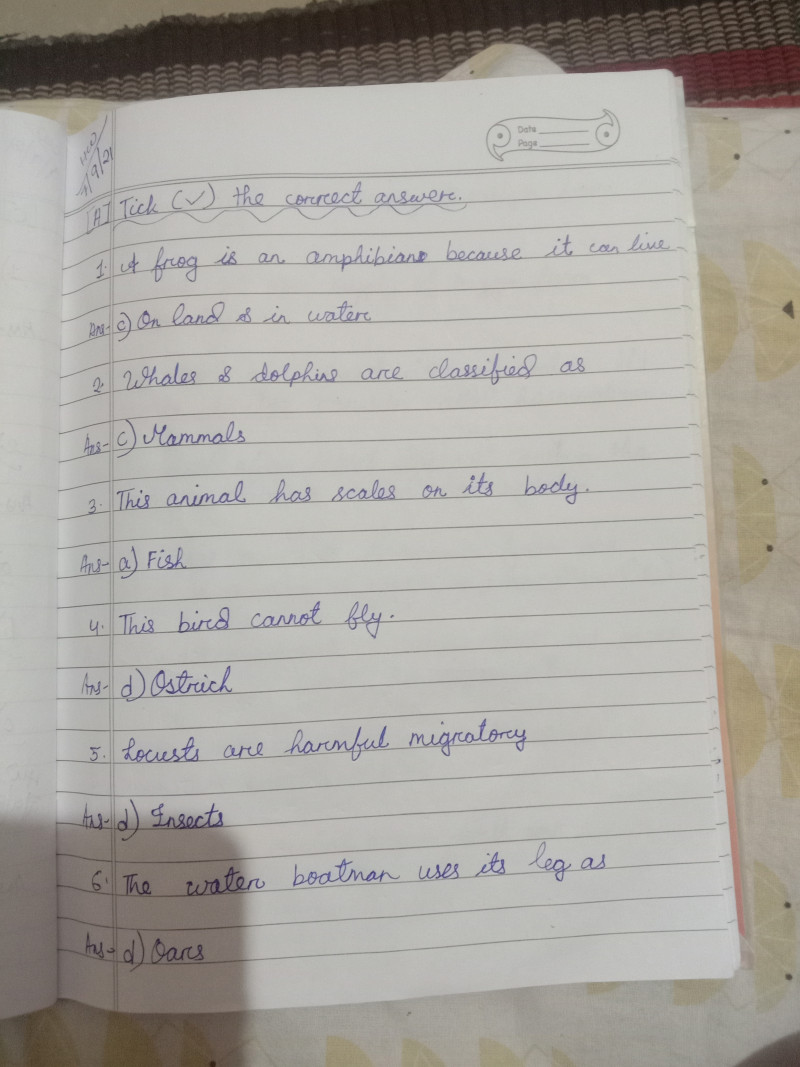 Date
Page
[A] Tick (✓) the correct answer.
1. A frog is an amphibian because it can live
Ans- c) On land & in water
2. Whales & dolphins are classified as
Ans- c) Mammals
3. This animal has scales on its body.
Ans- a) Fish
4. This bird cannot fly.
Ans- d) Ostrich
5. Locusts are harmful migratory
Ans- d) Insects
6. The water boatman uses its leg as
Ans- d) Oars